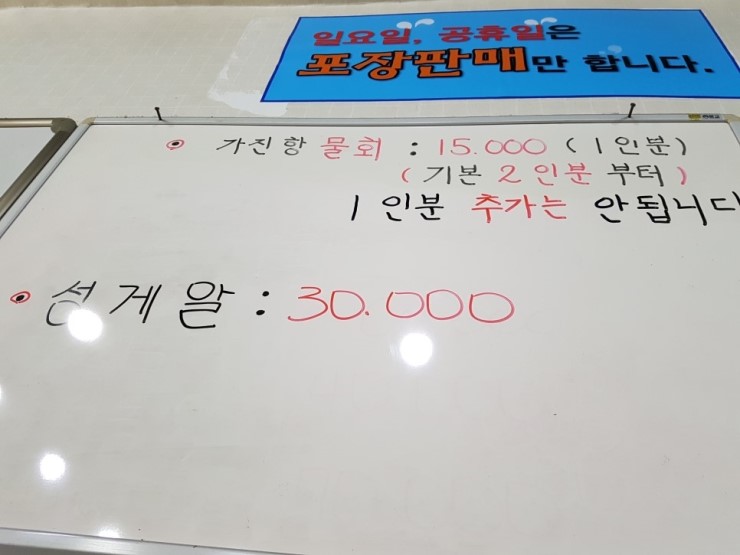 일요일, 공휴일은
포장판매만 합니다.
가진항 물회 : 15.000 (1인분)
(기본 2인분 부터)
1인분 추가는 안됩니다
성게알 : 30.000